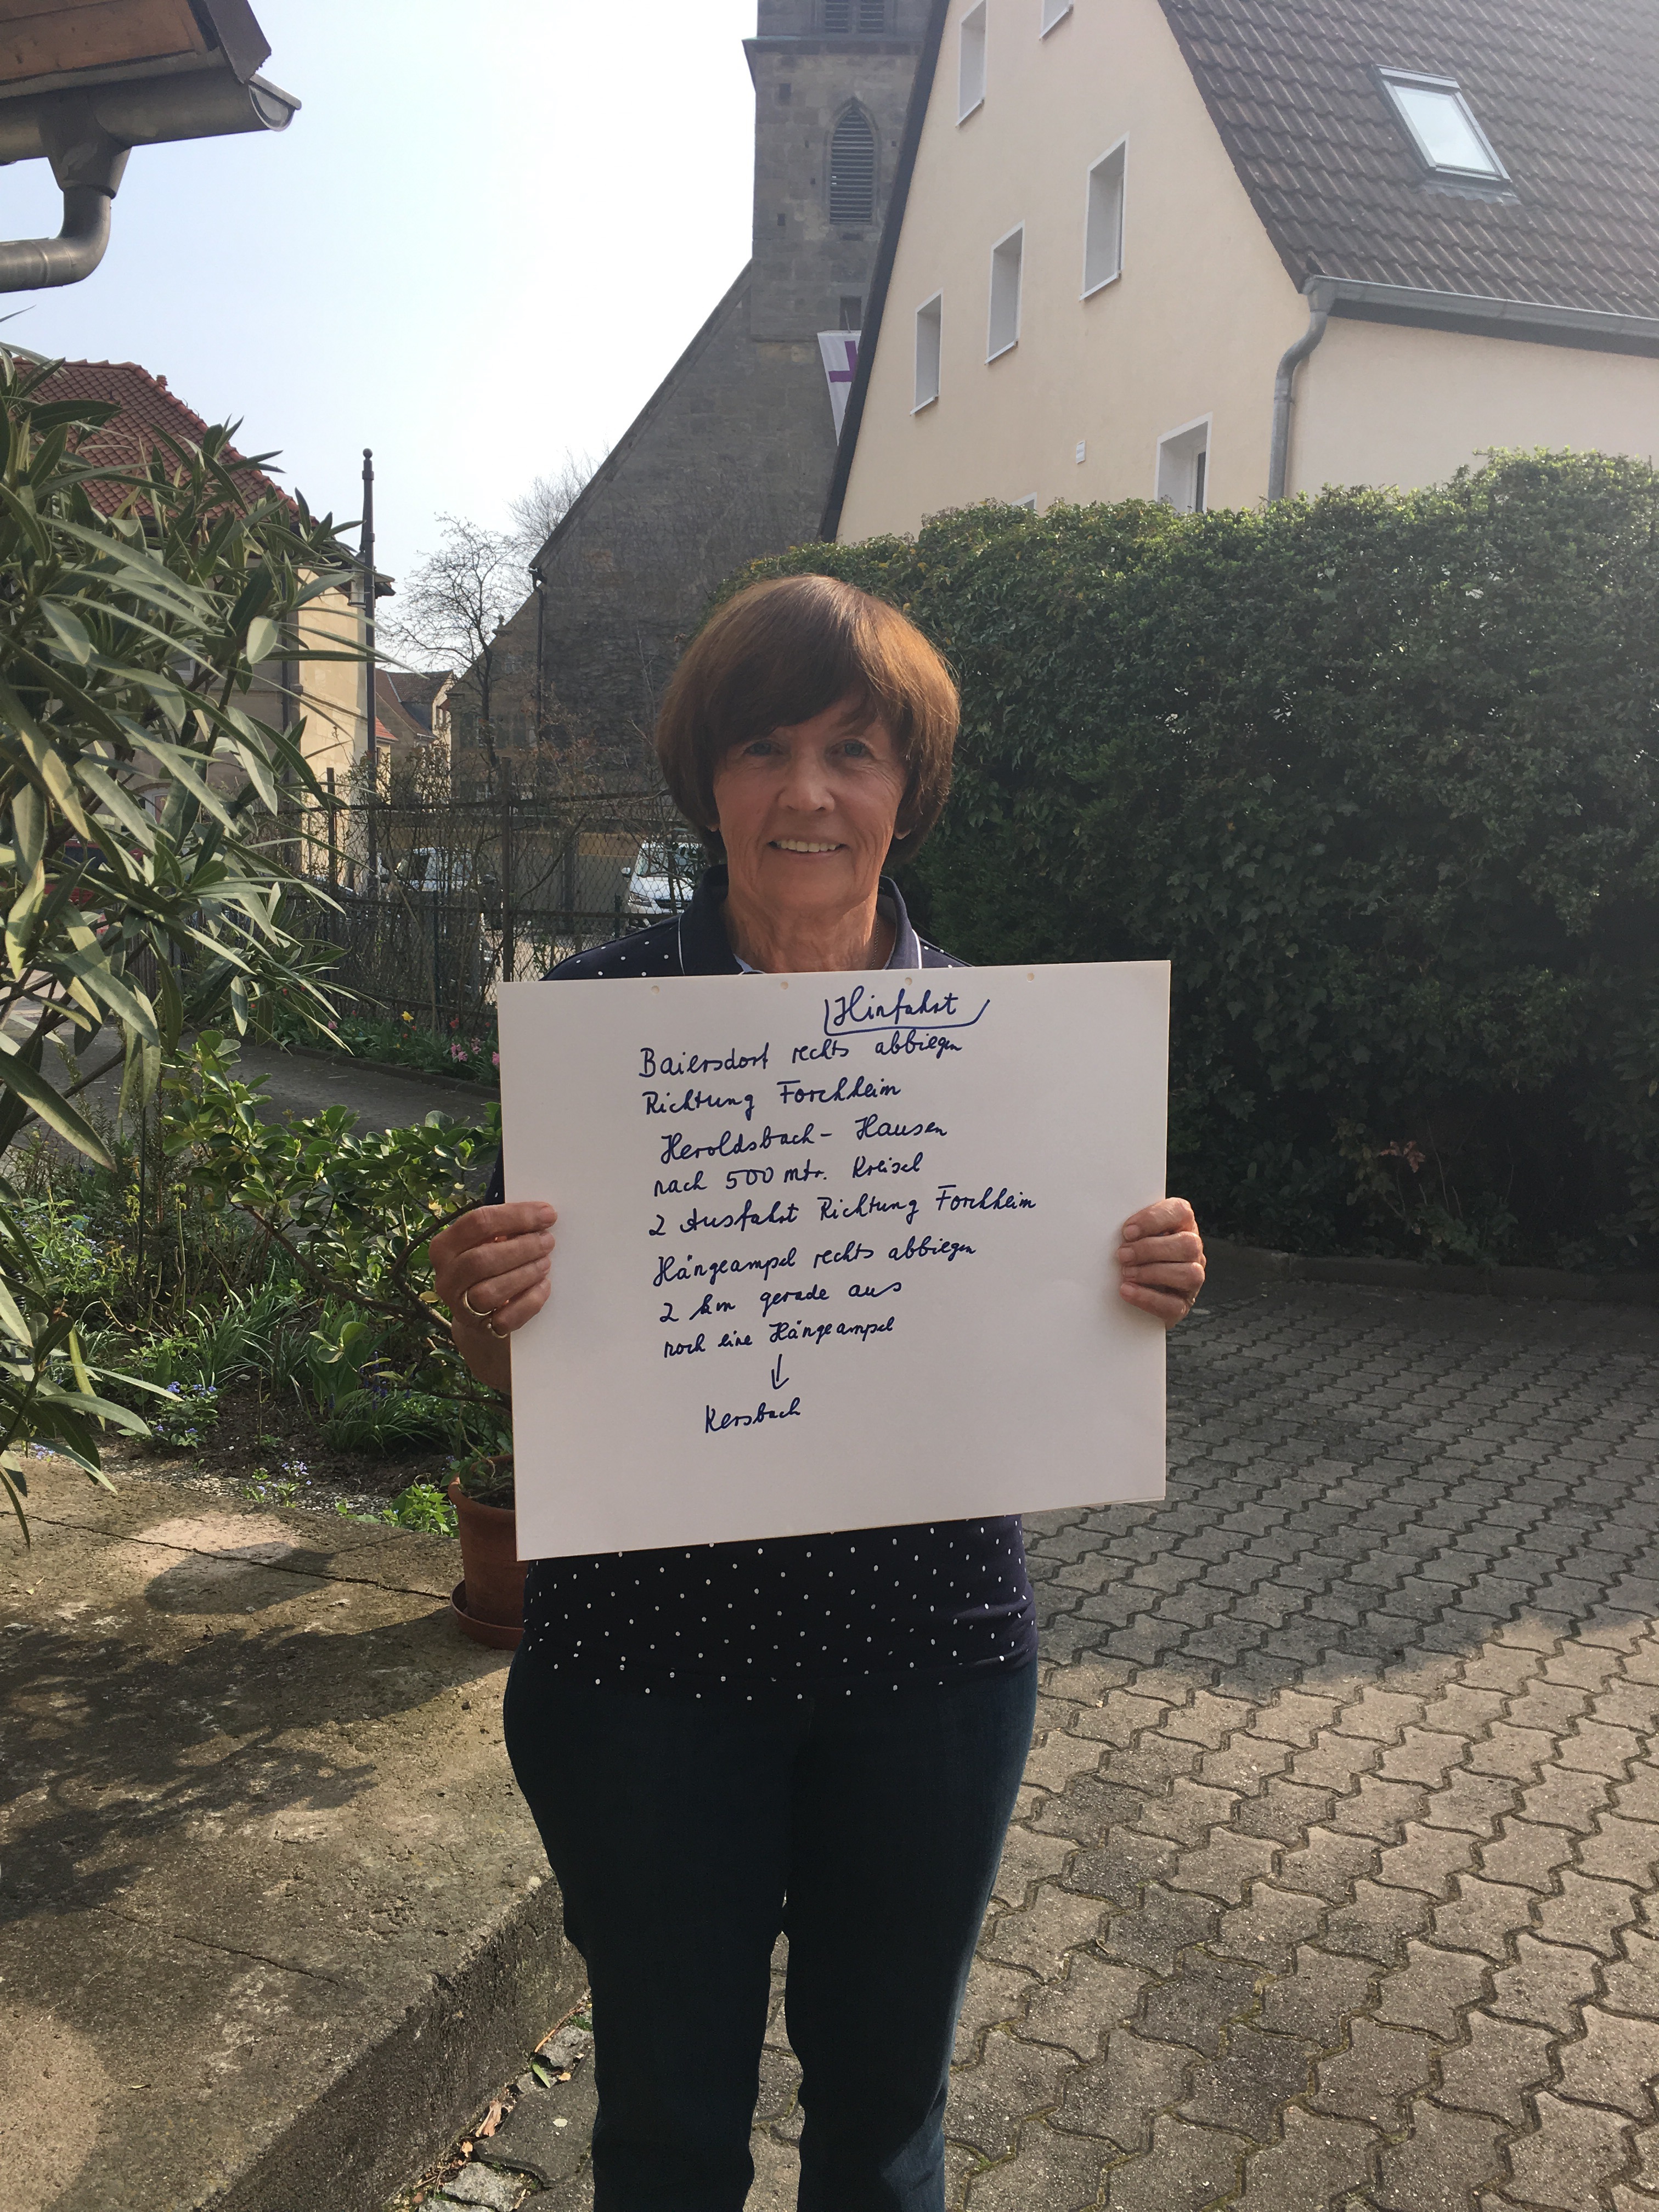 Hinfahrt
Baiersdorf rechts abbiegen
Richtung Forchheim
Heroldsbach - Hausen
nach 500 mtr. Kreisel
2 Ausfahrt Richtung Forchheim
Hängeampel rechts abbiegen
2 km gerade aus
noch eine Hängeampel
↓
Kersbach